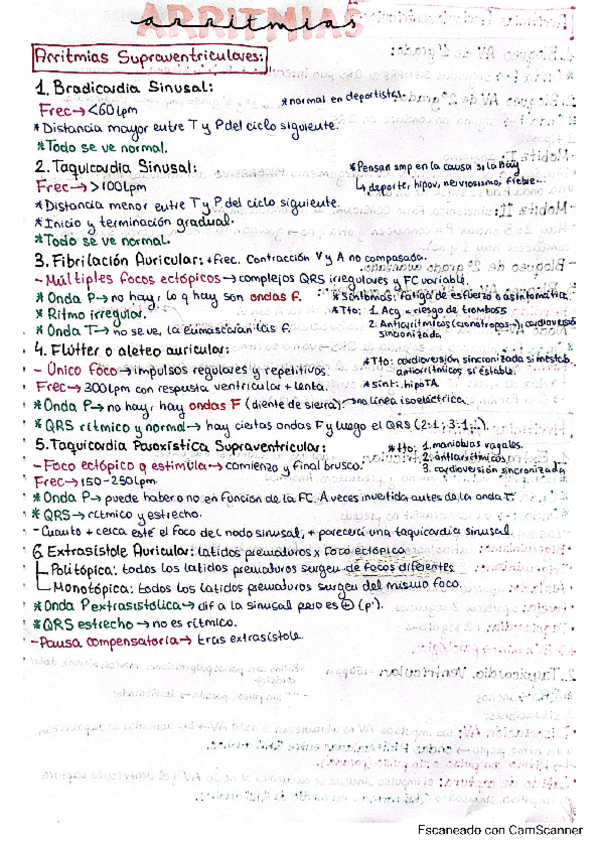 ARRITMIAS
arritmias
Arritmias Supraventriculares:
1. Bradicardia Sinusal:
*normal en deportistas.
Frec→<60lpm
*Distancia mayor entre T y P del ciclo siguiente.
*Todo se ve normal.
2. Taquicardia Sinusal:
*Pensar smp en la causa si la hay
Frec→>100lpm
↳deporte, hipov, nerviosismo, fiebre...
*Distancia menor entre T y P del ciclo siguiente.
*Inicio y terminación gradual.
*Todo se ve normal.
3. Fibrilación Auricular: +frec. Contracción V y A no compasada.
-Múltiples focos ectópicos→complejos QRS irregulares y FC variable.
*Onda P→no hay, lo q hay son ondas f.
*Síntomas: fatiga de esfuerzo o asintomática.
*Ritmo irregular.
*Tto: 1. Acg → riesgo de trombosis
*Onda T→no se ve, la enmascaran las f.
2. Antiarrítmicos (cronotropos-), cardioversión
sincronizada
4. Flutter o aleteo auricular:
-Único foco→impulsos regulares y repetitivos.
*Tto: cardioversión sincronizada si inestab.
antiarrítmicos si estable.
Frec→300lpm con respuesta ventricular + lenta.
*sínt: hipoTA.
*Onda P→no hay, hay ondas F (diente de sierra). →no línea isoeléctrica.
*QRS rítmico y normal→hay ciertas ondas F y luego el QRS (2:1; 3:1...).
5. Taquicardia Paroxística Supraventricular:
*tto: 1. maniobras vagales.
2. antiarrítmicos.
3. cardioversión sincronizada
-Foco ectópico q estimula→comienzo y final brusco.
Frec→150-250lpm
*Onda P→puede haber o no en función de la FC. A veces invertida antes de la onda T.
*QRS→rítmico y estrecho.
-Cuanto + cerca esté el foco del nodo sinusal, + parecerá una taquicardia sinusal.
6. Extrasístole Auricular: latidos prematuros x foco ectópico
Politópica: todos los latidos prematuros surgen de focos diferentes.
Monotópica: todos los latidos prematuros surgen del mismo foco.
*Onda P extrasistólica→dif a la sinusal pero es ⊕ (p').
*QRS estrecho→no es rítmico.
-Pausa compensatoria→tras extrasístole.
Escaneado con CamScanner